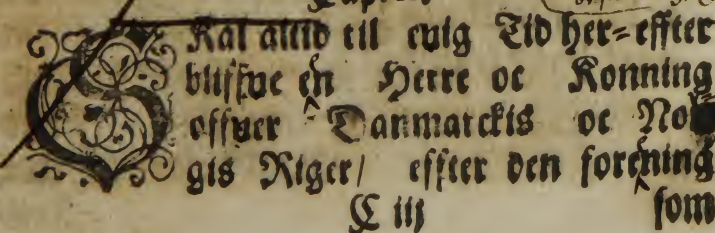 SKal altid til evig Tid her-effter
bliffve en Herre oc Konning
offver Danmarckis oc Nor
gis Riger/ effter den forening
C iij som